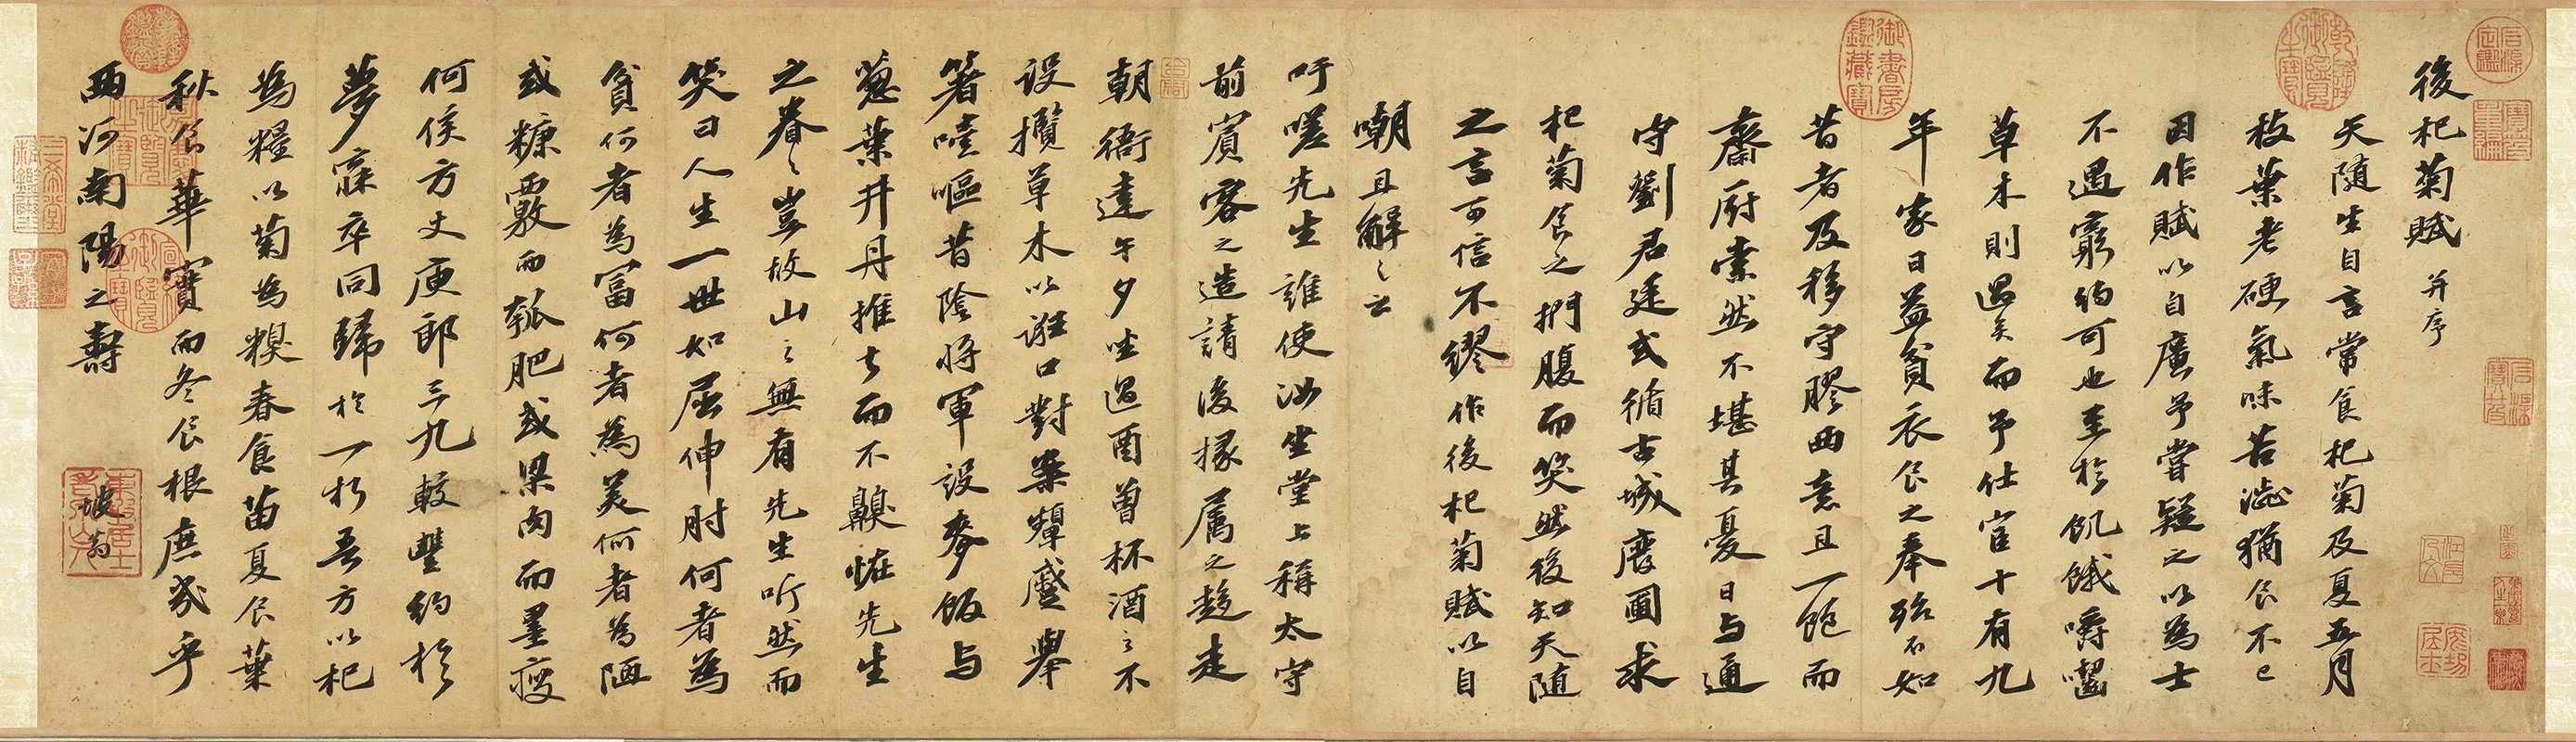 後杞菊賦 并序
天隨生自言常食杞菊及夏五月
枝葉老硬氣味苦澁猶食不已
因作賦以自廣予嘗疑之以為士
不遇窮約可也至於飢餓嚼齧
草木則過矣而予仕宦十有九
年家日益貧衣食之奉殆不如
昔者及移守膠西意且一飽而
齋厨索然不堪其憂日與通
守劉君廷式循古城廢圃求
杞菊食之捫腹而笑然後知天隨
之言可信不繆作後杞菊賦以自
嘲且解〻云
吁嗟先生誰使汝坐堂上稱太守
前賓客之造請後掾屬之趍走
朝衙達午夕坐過酉曽杯酒〻不
設攬草木以誑口對案顰蹙舉
箸噎嘔昔陰將軍設麥飯與
葱葉井丹推去而不齅恠先生
之眷〻豈故山〻無有先生听然而
笑曰人生一世如屈伸肘何者為
貧何者為富何者為美何者為陋
或糠覈而瓠肥或梁肉而墨瘦
何侯方丈庾郎三九較豐約於
夢寐卒同歸於一朽吾方以杞
為糧以菊為糗春食苗夏食葉
秋食華實而冬食根庶幾乎
西河南陽之壽
坡翁